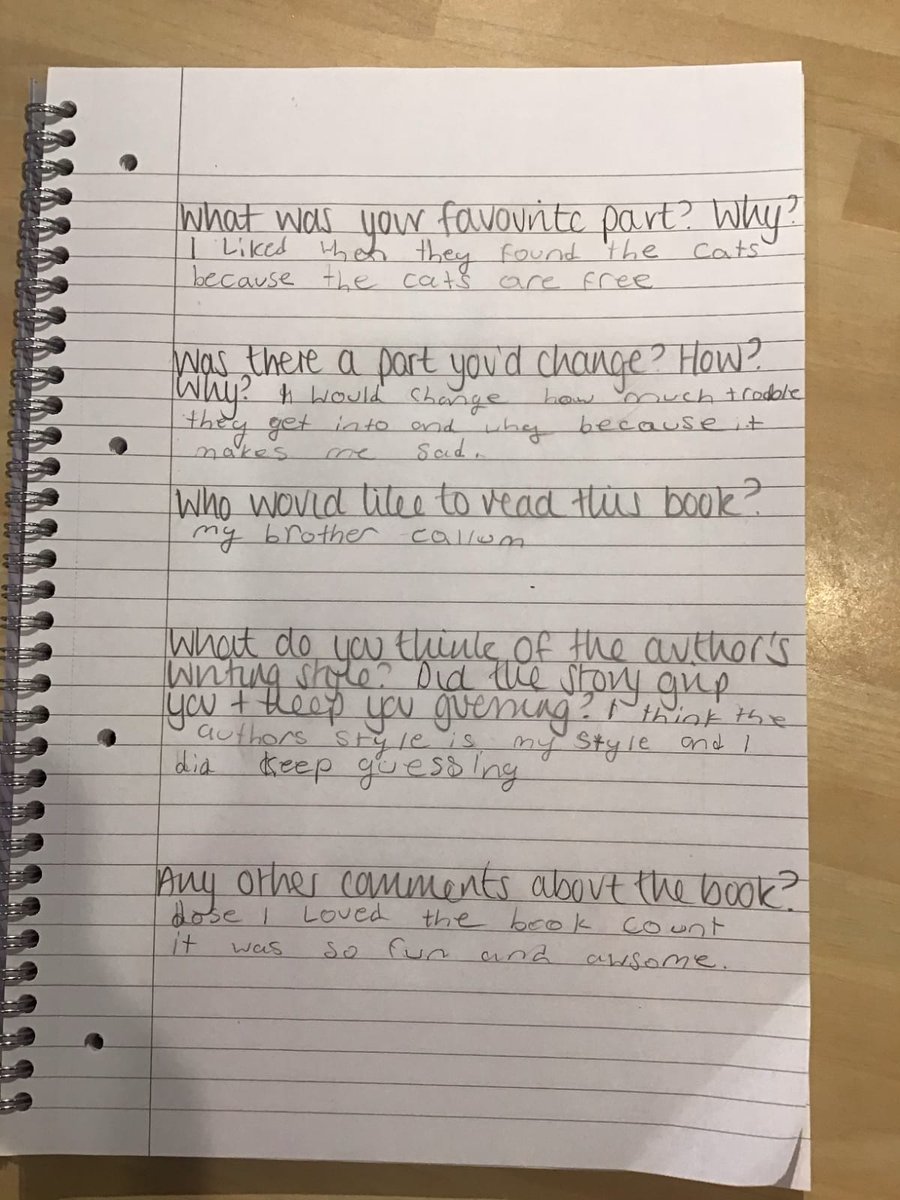 What was your favourite part? Why?
I Liked when they found the cats
because the cats are free
Was there a part you'd change? How?
Why? I would change how much trooble
they get into and why because it
makes me sad.
Who would like to read this book?
my brother callum
What do you think of the author's
writing style? Did the story grip
you + keep you guessing? I think the
authors style is my style and I
did keep guessing
Any other comments about the book?
dose I Loved the book count
it was so fun and awsome.